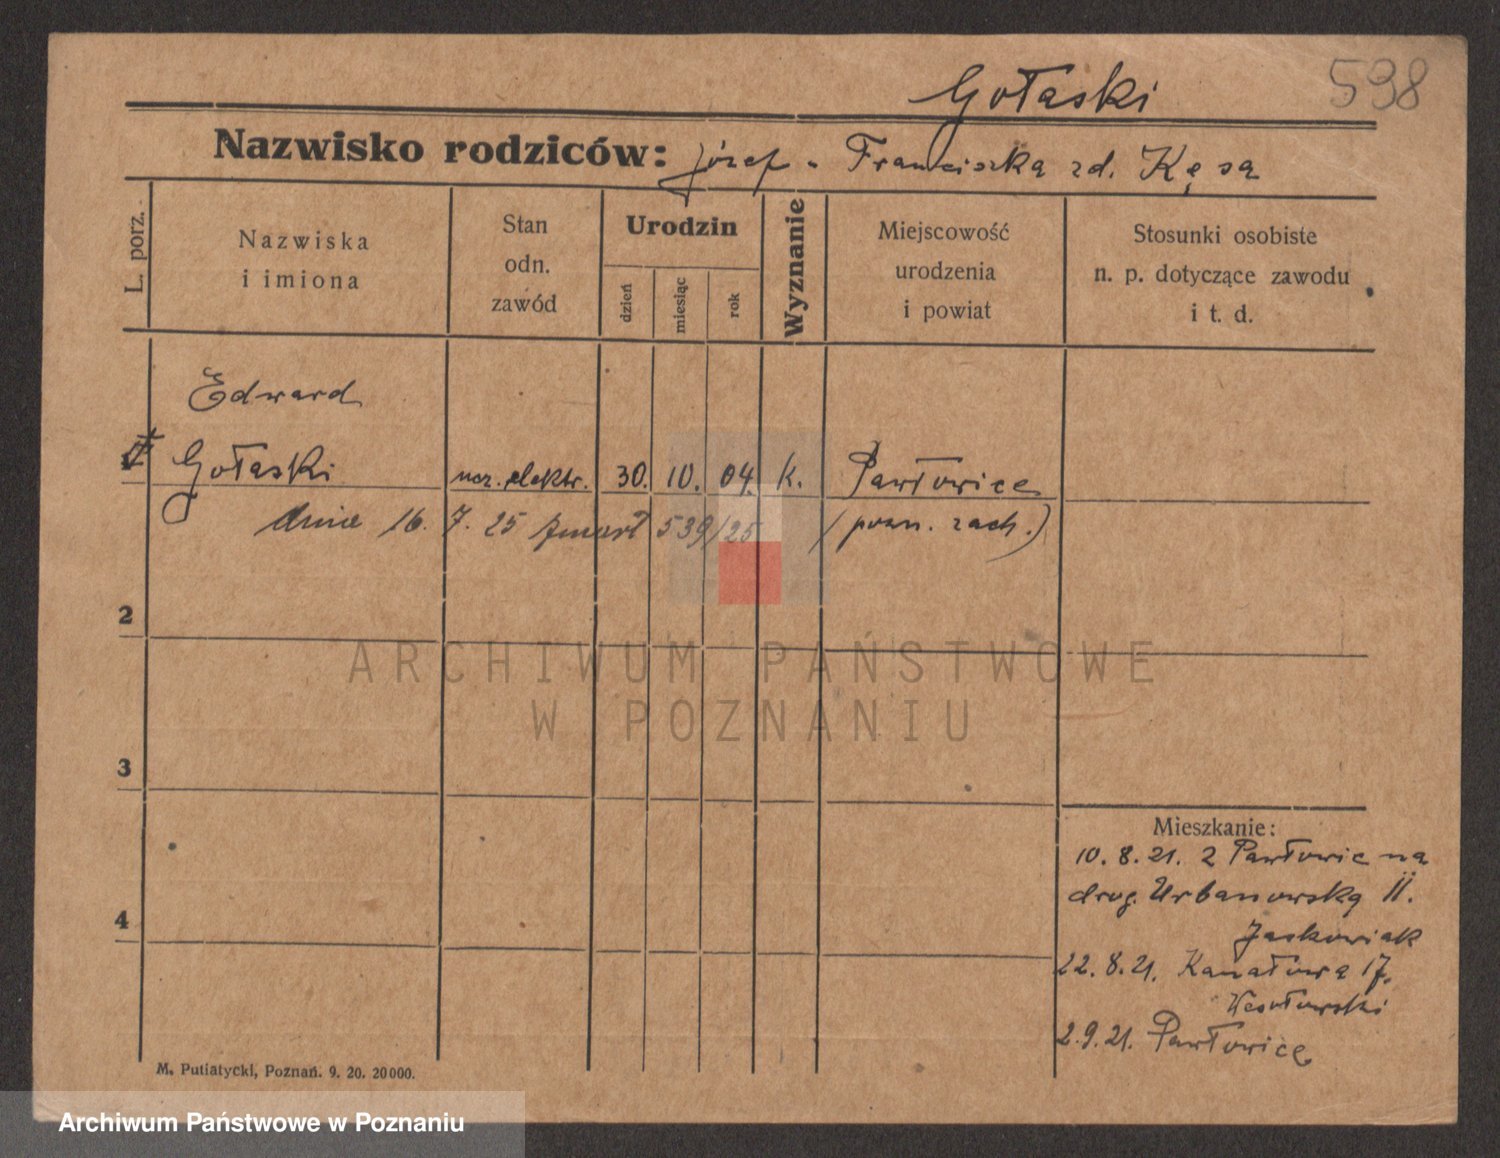 Gołaski
598
Nazwisko rodziców: Józef - Franciszka zd. Kęsa
L. porz.
Nazwiska i imiona
Stan odn. zawód
Urodzin
dzień
miesiąc
rok
Wyznanie
Miejscowość urodzenia i powiat
Stosunki osobiste n. p. dotyczące zawodu i t. d.
Edward
Gołaski
ucz. elektr.
30. 10. 04.
K.
Pawłowice
dnia 16. 7. 25 zmarł 539/25
(pozn. zach.)
2
3
4
Mieszkanie:
10. 8. 21. z Pawłowic na
drog. Urbanowską II.
Jaskowiak
22. 8. 21. Kanałowa 17.
Wesołowski
2. 9. 21. Pawłowice
M. Putiatycki, Poznań. 9. 20. 20000.
ARCHIWUM PAŃSTWOWE
W POZNANIU
Archiwum Państwowe w Poznaniu